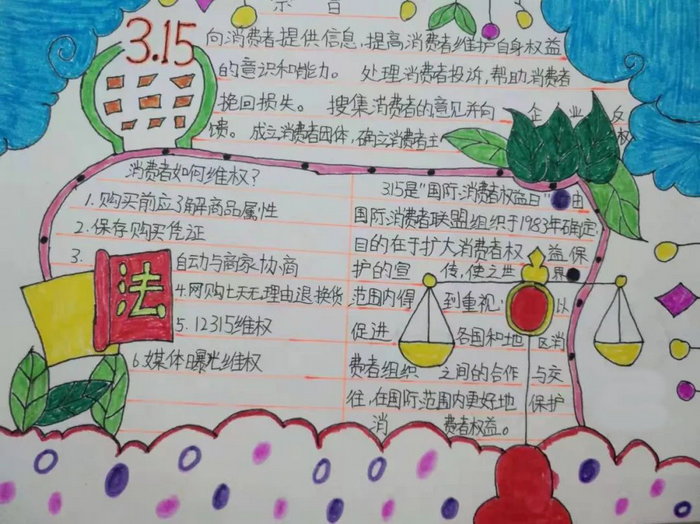 3.15
向消费者提供信息，提高消费者维护自身权益
的意识和能力。 处理消费者投诉，帮助消费者
挽回损失。 搜集消费者的意见并向 企业 反
馈。 成立消费者团体，确立消费者主 权
消费者如何维权？
1.购买前应了解商品属性
2.保存购买凭证
3. 自动与商家协商
4.网购七天无理由退换货
5.12315维权
6.媒体曝光维权
法
315是"国际消费者权益日" 由
国际消费者联盟组织于1983年确定
目的在于扩大消费者权 益保
护的宣 传，使之世 界
范围内得 到重视 以
促进 各国和地 区消
费者组织 之间的合作 与交
往，在国际范围内更好地 保护
消 费者权益。